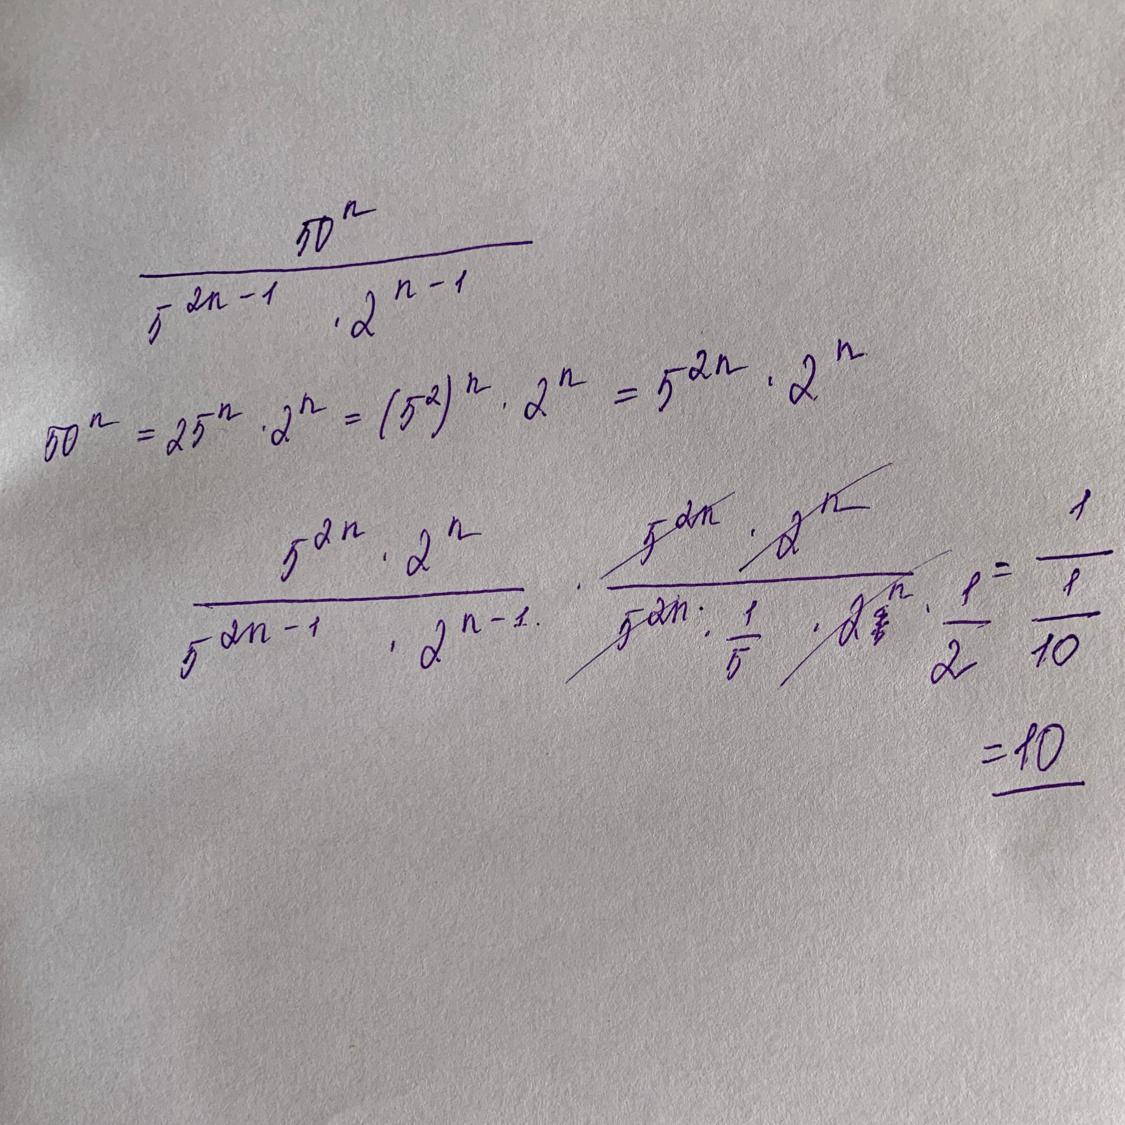 50ⁿ
5²ⁿ⁻¹ · 2ⁿ⁻¹
50ⁿ = 25ⁿ · 2ⁿ = (5²)ⁿ · 2ⁿ = 5²ⁿ · 2ⁿ
5²ⁿ · 2ⁿ · 5²ⁿ · 2ⁿ = 1
5²ⁿ⁻¹ · 2ⁿ⁻¹. 5²ⁿ · 1/5 · 2ⁿ · 1/2 1/10
= 10